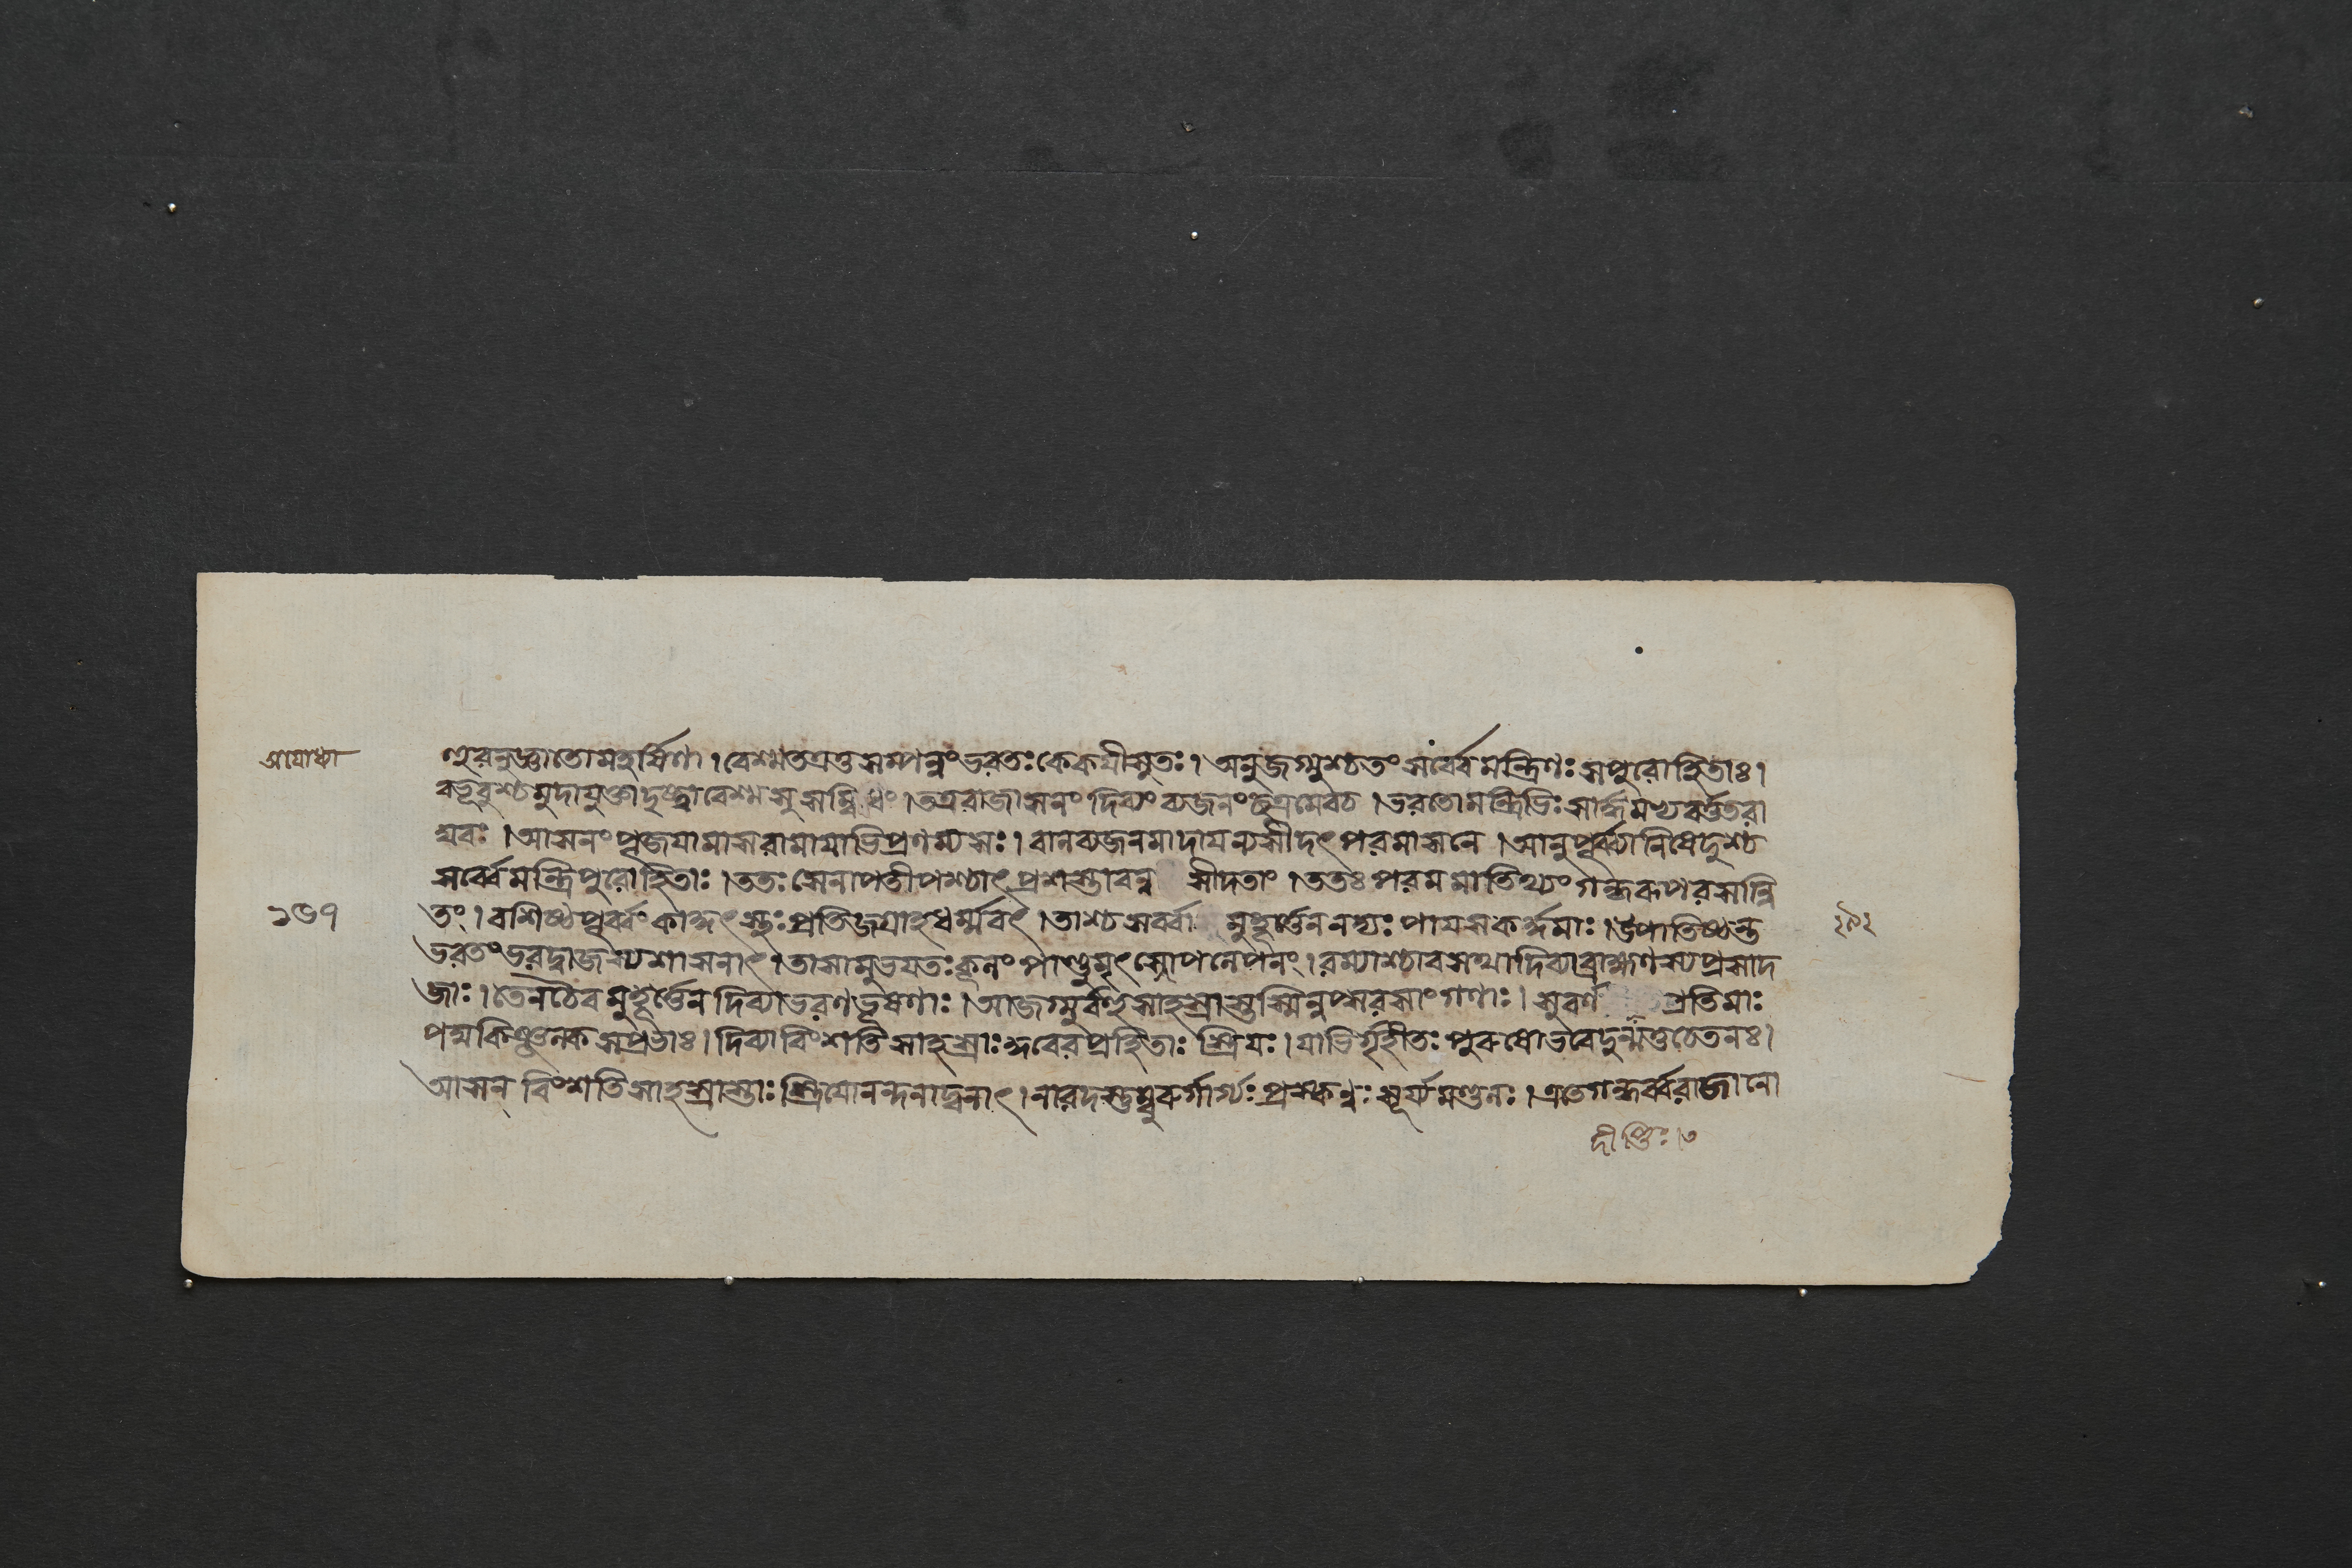 অযোধ্যা
হুরনুজ্ঞাতোমহর্ষিণা । বেশ্মতত্রত্নসম্পন্নং ভরতঃ কেকয়ীসুতঃ । অনুজগ্মুশ্চতং সর্ব্বেমন্ত্রিণঃ সপুরোহিতাঃ ।
বভূবুশ্চমুদাযুক্তাদৃষ্ট্বাবেশ্মসুসম্বিধং । তত্ররাজাসনং দিব্যং ব্যজনং ছত্রমেবচ । ভরতোমন্ত্রিভিঃ সার্দ্ধমভ্যবর্ত্ততরা
ঘবঃ । আসনং পূজযামাসরামাযাভিপ্রণম্যসঃ । বালব্যজনমাদাযন্যসীদৎপরমাসনে । আনুপূর্ব্ব্যানিষেদুশ্চ
সর্ব্বেমন্ত্রিপুরোহিতাঃ । ততঃ সেনাপতীপশ্চাৎপ্রশাস্তাবনু সীদতাং । ততঃ পরমমাতিথ্যং গন্ধরূপরসান্বি
১৬৭
তং । বশিষ্ঠপূর্ব্বং কাকুৎস্থঃ প্রতিজগ্রাহধর্ম্মবৎ । তাশ্চসর্ব্বা মুহূর্ত্তেননদ্যঃ পাযসকর্দ্দমাঃ । উপাতিষ্ঠন্ত
ভরতংভরদ্বাজস্যশাসনাৎ । তাসামুভযতঃ কূলং পাণ্ডুমৃৎসোপলেপনং । রম্যাশ্চাবসথাদিব্যাব্রাহ্মণস্যপ্রসাদ
জাঃ । তেনচৈবমুহূর্ত্তেনদিব্যাভরণভূষণাঃ । আজগ্মুর্বহুসাহস্রাস্তস্মিন্নপ্সরসাং গণাঃ । সুবর্ণ প্রতিমাঃ
পদ্মকিঞ্জল্কসপ্রভাঃ । দিব্যাবিংশতিসাহস্রাঃ কুবেরপ্রহিতাঃ স্ত্রিযঃ । যাভির্গৃহীতঃ পুরুষোভবেদুন্মত্তচেতনঃ ।
আসন বিংশতিসাহস্রাস্তাঃ স্ত্রিযোনন্দনাদ্বনাৎ । নারদস্তুম্বুরুর্গার্গ্যঃ প্রস্কন্নঃ সূর্য্যমণ্ডলঃ । এতেগন্ধর্ব্বরাজানো